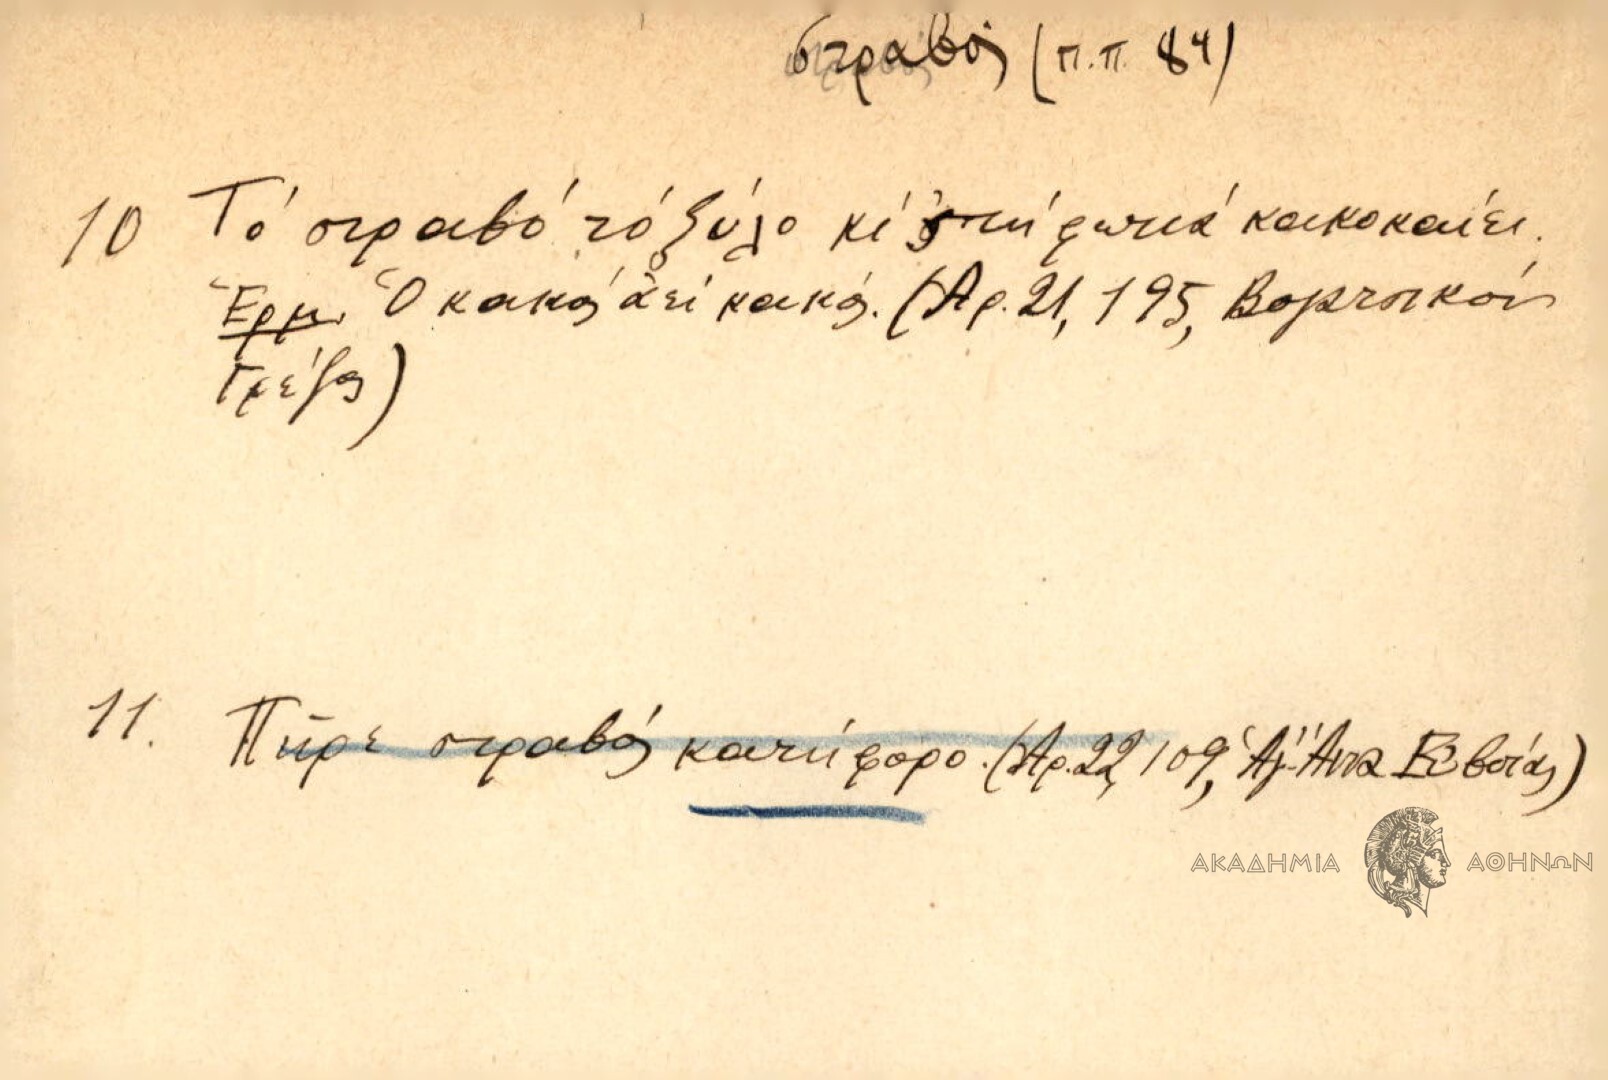 στραβός (π.π. 84)
10 Τό στραβό τό ξύλο κί στή φωτιά κακοκαίει.
Ἑρμ. Ὁ κακός ἀεί κακός. (Ἀρ. 21, 195,
11. Πῆρε στραβός κατήφορο. (Ἀρ. 22, 109, Ἁγ. Ἄννα Εὐβοίας)
ΑΚΑΔΗΜΙΑ ΑΘΗΝΩΝ